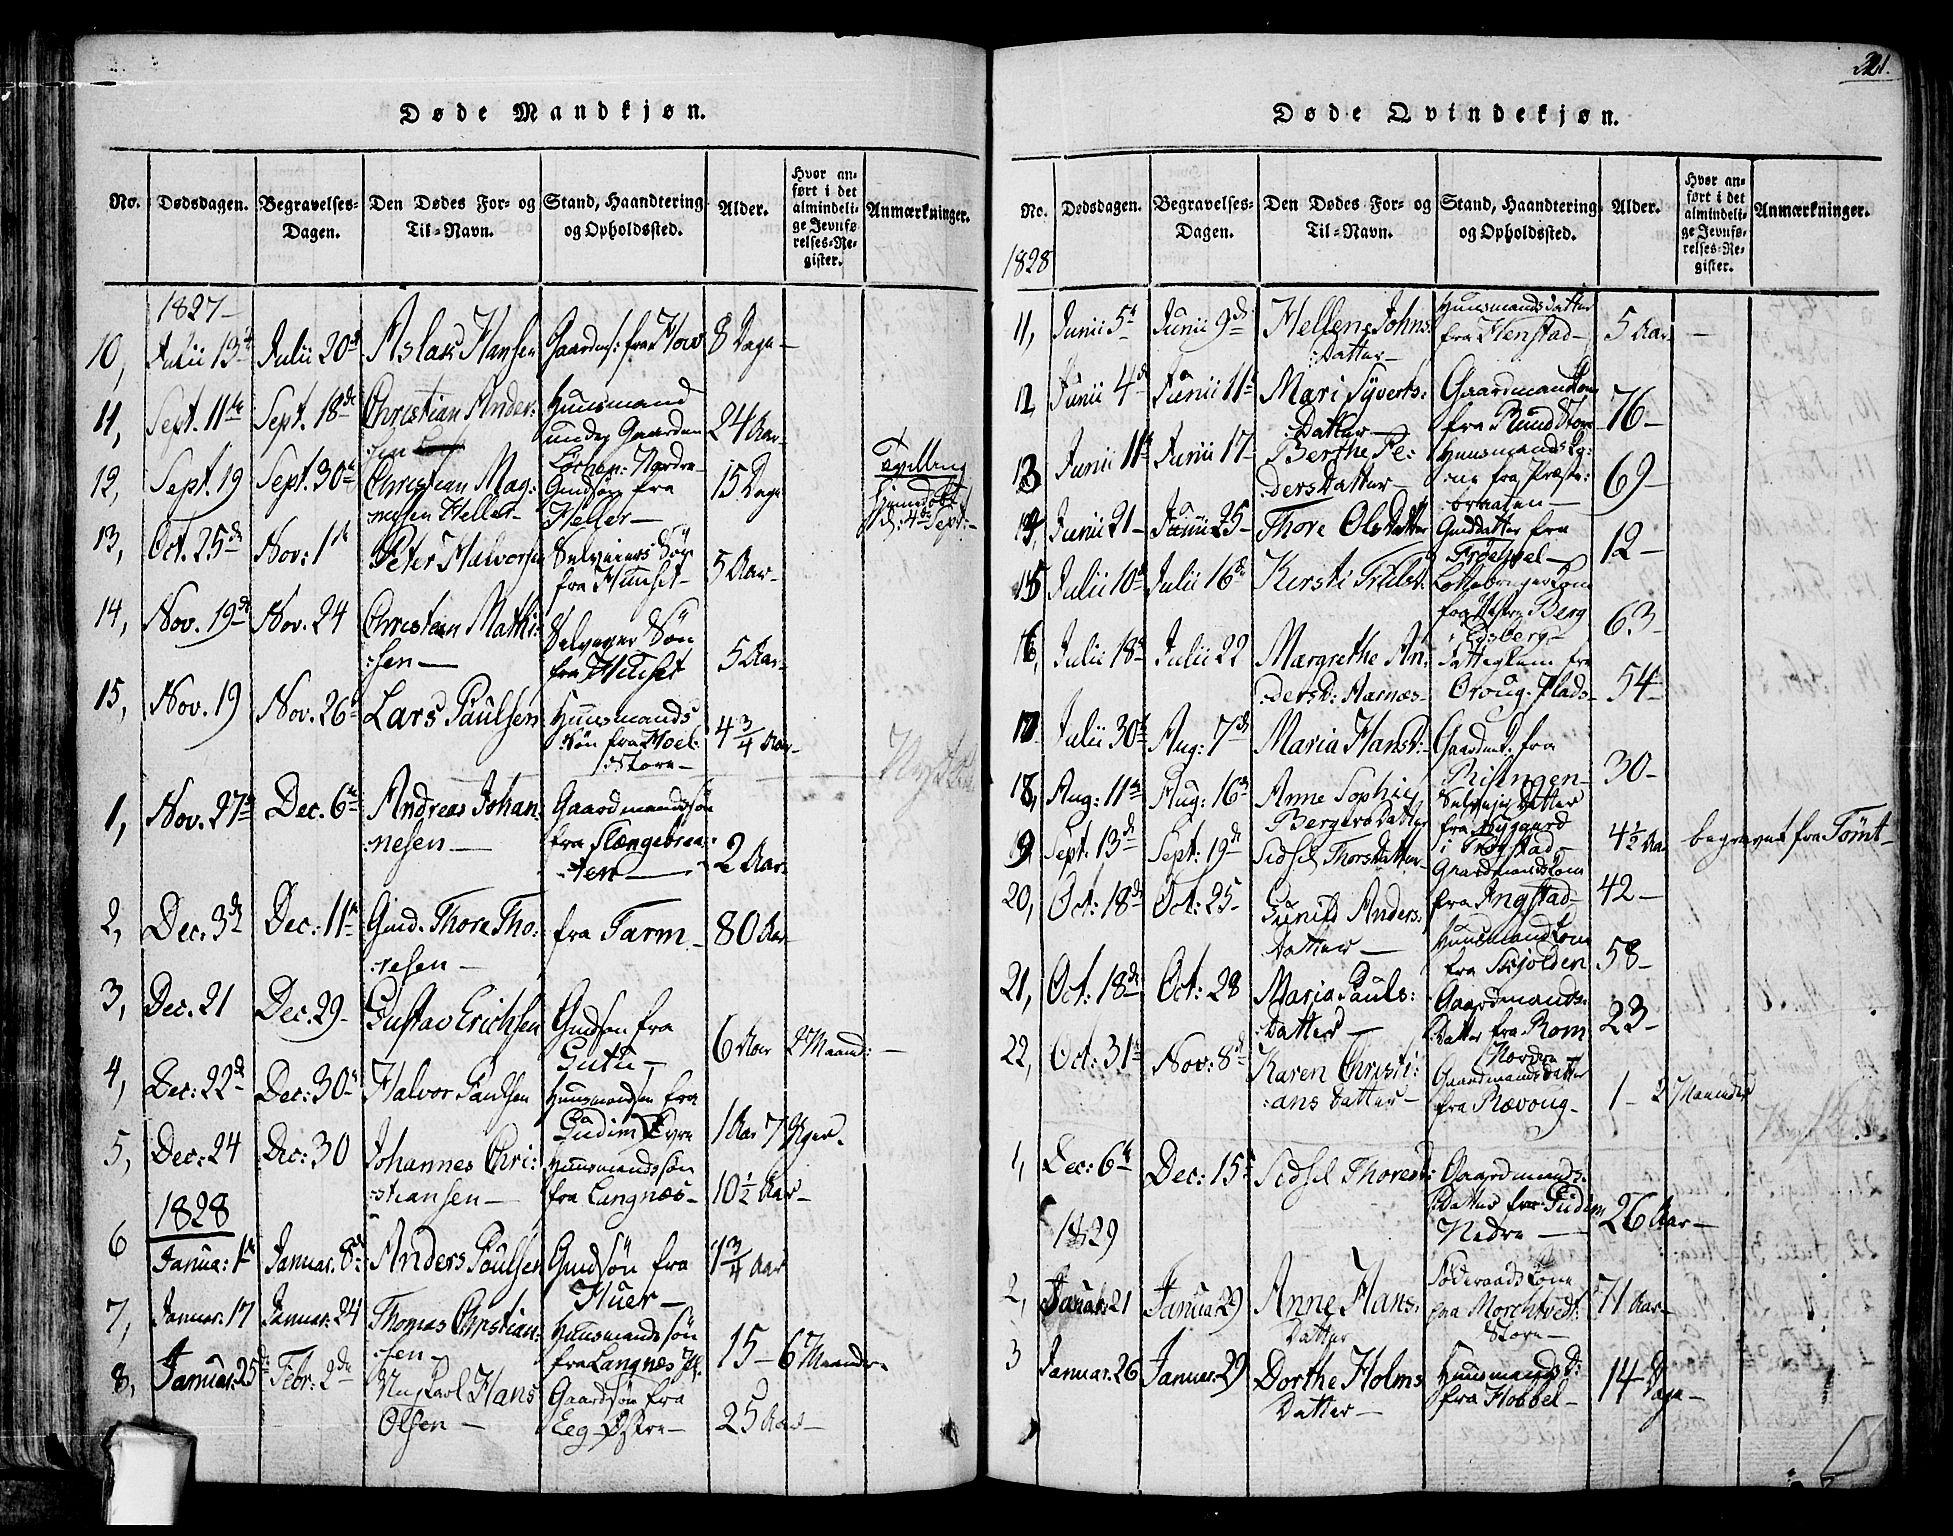 Døde Mandkjøn.
No. Dødsdagen. Begravelses-Dagen. Den Dødes For- og Til-Navn. Stand, Haandtering og Opholdssted. Alder. Hvor anført i det almindelige Jevnførelses-Register. Anmærkninger.
1827
10, Julii 13 Julii 20 Aslak Hansen Gaardms: fra Hov 8 Dage
11, Sept. 11te Sept. 18de Christian Ander:sen Huusmand under Gaarden 24 Aar
12, Sept. 19 Sept. 30 Christian Mag:nessen Heller Gudsøn fra Heller 15 Dage Tvilling
13, Oct. 25de Nov: 1 Peter Halvorsen Selveiers Søn fra Huuset 5 Aar
14, Nov. 19de Nov. 24 Christian Mathi:sen Selveyer Søn fra 5 Aar
15, Nov. 19 Nov. 26 Lars Paulsen Huusmands Søn fra 4 3/4 Aar
1, Nov. 27de Dec. 6te Andreas Johan:nesen Gaardmandssøn fra Slængebraa:ten 2 Aar
2, Dec. 3de Dec: 11te Gmd. Thore Tho:resen fra Tarm 80 Aar
3, Dec. 21 Dec. 29 Gustav Erichsen Gmdsøn fra Gutu 6 Aar 2 Maand:
4, Dec: 22de Dec: 30 Halvor Paulsen Huusmandsøn fra Gudim Øvre 1 Aar 7 Uger.
5, Dec: 24 Dec: 30 Johannes Chri:stiansen Huusmandssøn fra Langnæs 10 1/2 Aar
1828
6 Janua: 1te Januar. 8de Anders Poulsen Gmdsøn fra Huer 1 3/4 Aar
7, Januar. 17 Januar. 24 Thomas Christian:sen Huusmandssøn fra Langnæs 15 6 Maander
8, Januar. 25de Febr: 2de Ungkarl Hans Olsen Gaardsøn fra Eeg Østre 25 Aar
Døde Qvindekjøn. 221.
No. Dødsdagen. Begravelses-Dagen. Den Dødes For- og Til-Navn. Stand, Haandtering og Opholdssted. Alder. Hvor anført i det almindelige Jevnførelses-Register. Anmærkninger.
1828
11, Junii 5te Junii 9de Hellene Johns:Datter Huusmands Datter fra Henstad 5 Aar
12, Junii 4de Junii 11te Mari Syverts:Datter Gaardmandkone fra Rund Store 76
13 Junii 11te Junii 17 Berthe Pe:dersDatter Huusmands fra Præste:braaten 69
14, Junii 21 Junii 25 Thore OlsDatter Gmddatter fra 12
15 Julii 10de Julii 16de Kersti Kone fra Vestre Berg i Eidsberg 63
16, Julii 18de Julii 22 Margrethe An:dersd: Aarnæs fra Plads 54
17 Julii 30te Aug: 7de Maria Hansd: Gaardmd. fra Risingen 30
18, Aug: 11te Aug: 16de Anne Sophie BergersDatter Selveier Datter fra Nygaard i Trøgstad 4 1/2 Aar begravet fra Tömt
19 Sept: 13de Sept: 19de Sidsel ThorsDatter Gaardmandskone fra Ringstad 42
20, Oct: 18de Oct: 25 Gunild Anders:Datter Huusmandkone fra Skjolden 58
21, Oct: 18de Oct: 28 Maria Pauls:Datter Gaardmands:Datter fra Rom Nordre 23
22, Oct: 31te Nov: 8de Karen Christi:ansDatter Gaardmandsdatter fra Rævoug 1 2 Maander
1, Dec: 6te Dec: 15de Sidsel Thoresd: Gaardmands:Datter fra Gudim Nedre 26 Aar
1829
2, Januar: 21 Januar 29 Anne Hans:Datter Föderaadskone fra Morchtvedt Store 71 Aar
3 Januar. 26 Januar. 29 Dorthe HolmsDatter Huusmands D: fra Hobbel 14 Dage